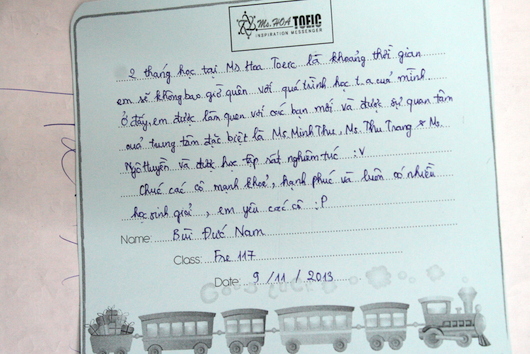 Ms.HOA TOEIC
INSPIRATION MESSENGER
2 tháng học tại Ms Hoa Toeic là khoảng thời gian
em sẽ không bao giờ quên với quá trình học t.a của mình.
Ở đấy, em được làm quen với các bạn mới và được sự quan tâm
của trung tâm đặc biệt là Ms Minh Thu, Ms. Thu Trang & Ms.
Ngô Huyền và được học tập rất nghiêm túc :v
Chúc các cô mạnh khoẻ, hạnh phúc và luôn có nhiều
học sinh giỏi, em yêu các cô :P
Name: Bùi Đức Nam
Class: Fre 117
Date: 9/11/2013
Good luck